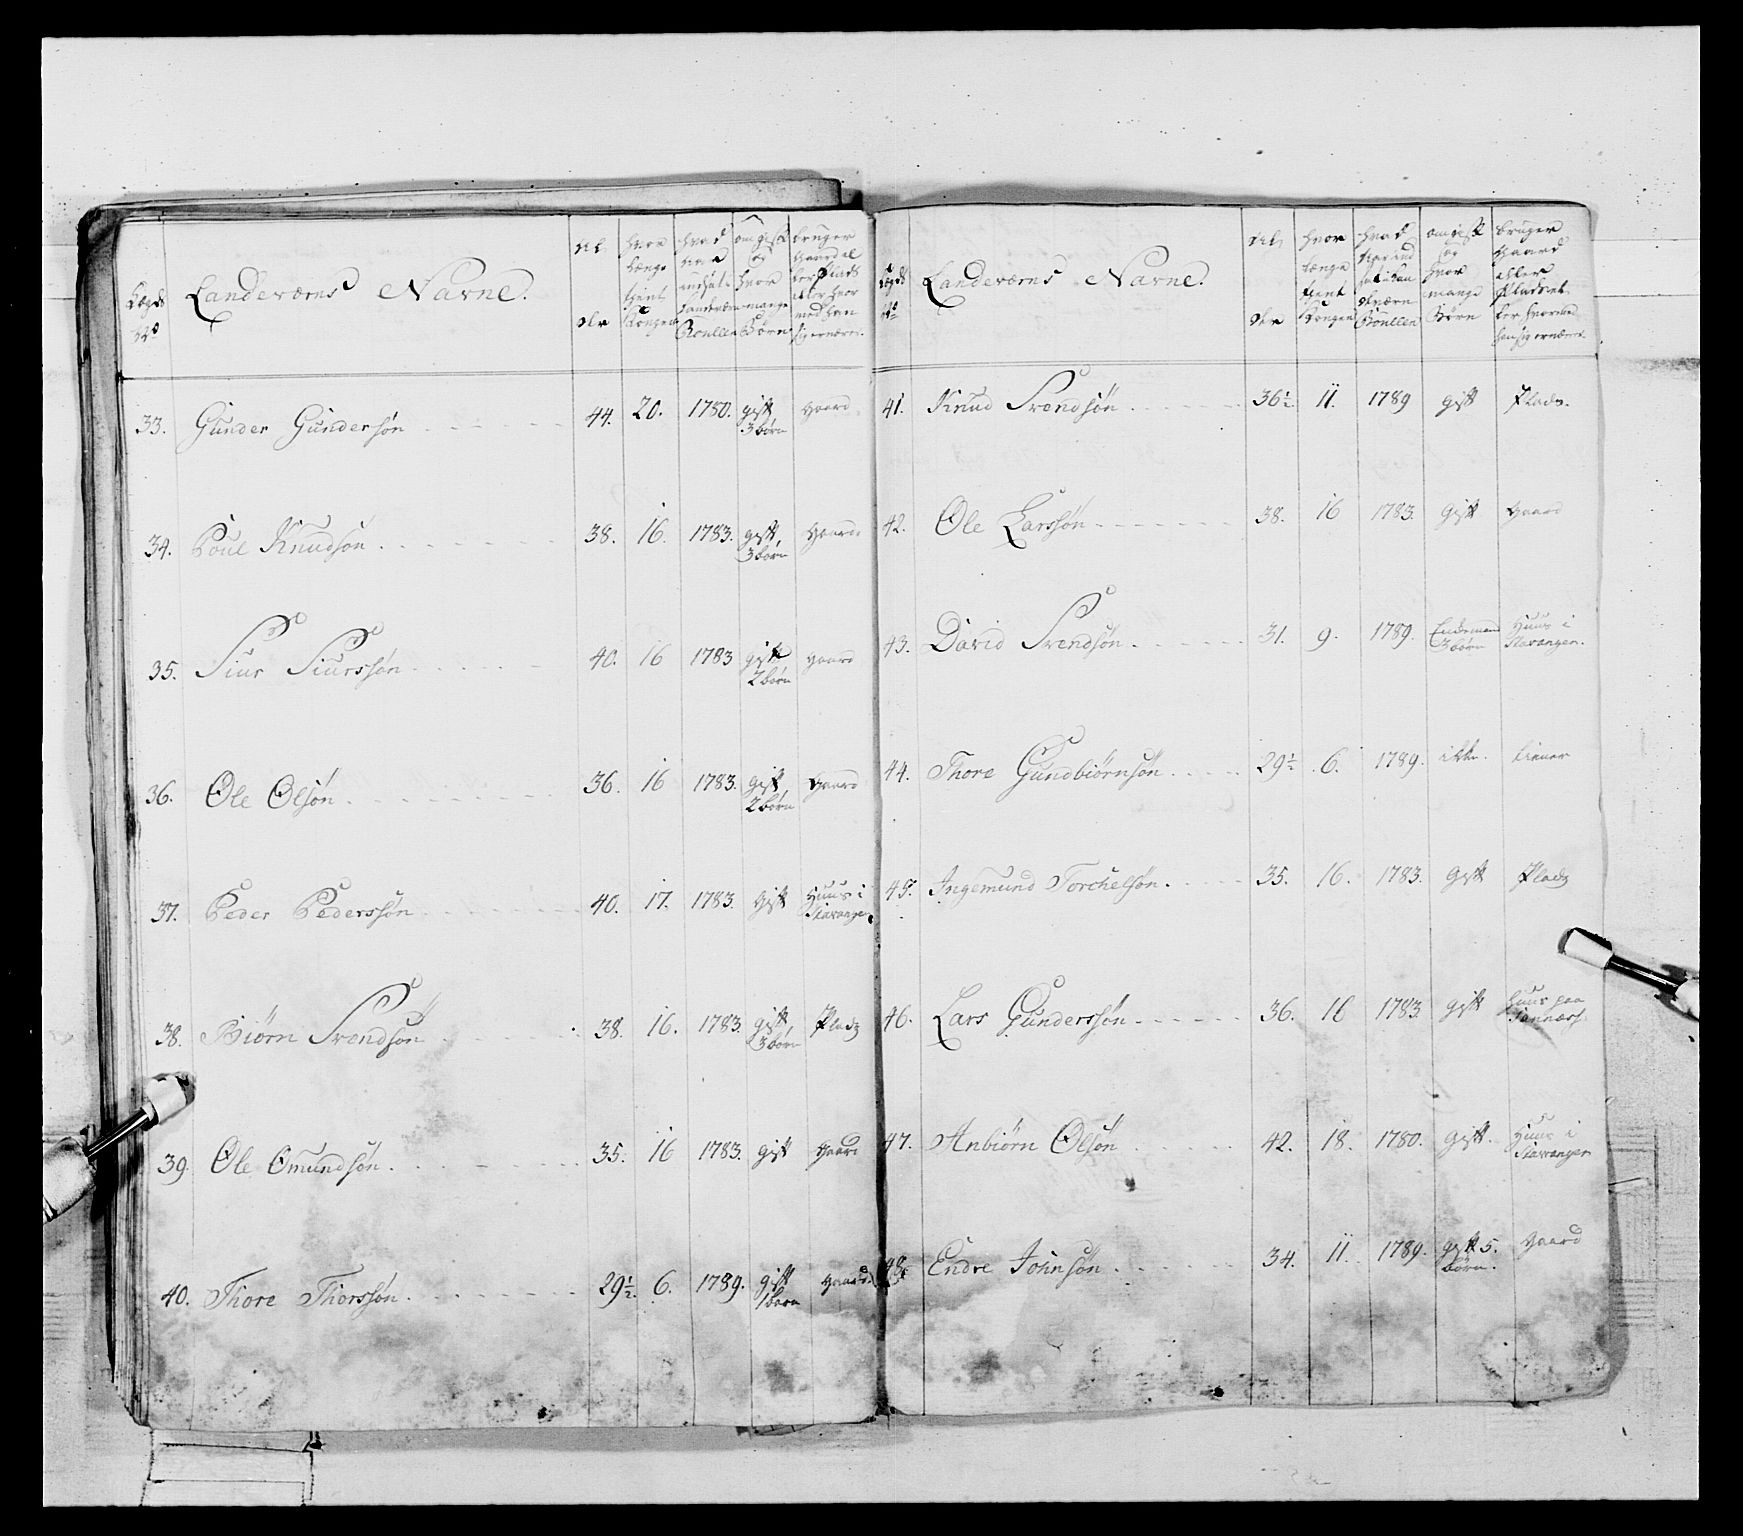 Lægds No Landeværns Navne. Al- der hvor længe tient Kongen hvad Aar indsat i Landeværn Roullen om gift og hvor mange Børn bruger Gaard el ler Plads eller hvor med han sig ernærer.
33. Gunder Gundersøn 44. 20. 1780. gift 3 børn Gaard.
34. Poul Knudsøn 38. 16. 1783. gift 3 børn Gaard.
35. Siur Siurssøn 40. 16 1783 gift 2 børn Gaard
36. Ole Olsøn 36. 16 1783. gift 2 børn Gaard
37. Peder Pederssøn 40. 17. 1783. gift Huus i Stavanger.
38. Biørn Svendsøn 38. 16. 1783. gift 3 børn Plads
39. Ole Omundsøn 35. 16 1783. gift Gaard
40. Thore Thorssøn 29½ 6. 1789. gift 1 barn Gaard.
Lægds No Landeværns Navne. Al- der hvor længe tient Kongen hvad Aar ind sat i Lan deværn Roullen om gift og hvor mange Børn bruger Gaard eller Plads el ler hvormed han sig ernærer.
41. Knud Svendsøn 36½ 11. 1789 gift Plads.
42. Ole Larssøn 38. 16 1783. gift Gaard
43. David Svendsøn 31. 9. 1789. Enkemand 3 børn Huus i Stavanger.
44. Thore Gundbiørnsøn 29½ 6. 1789. ikke. tiener
45. Ingemund Torchelsøn. 35. 16. 1783. Gift Plads
46. Lars Gunderssøn 36. 16 1783. gift Huus paa
47. Anbiørn Olsøn 42. 18. 1780. Gift. Huus i Stavanger
48. Endre Johnsøn 34. 11. 1789. gift 5. børn. Gaard